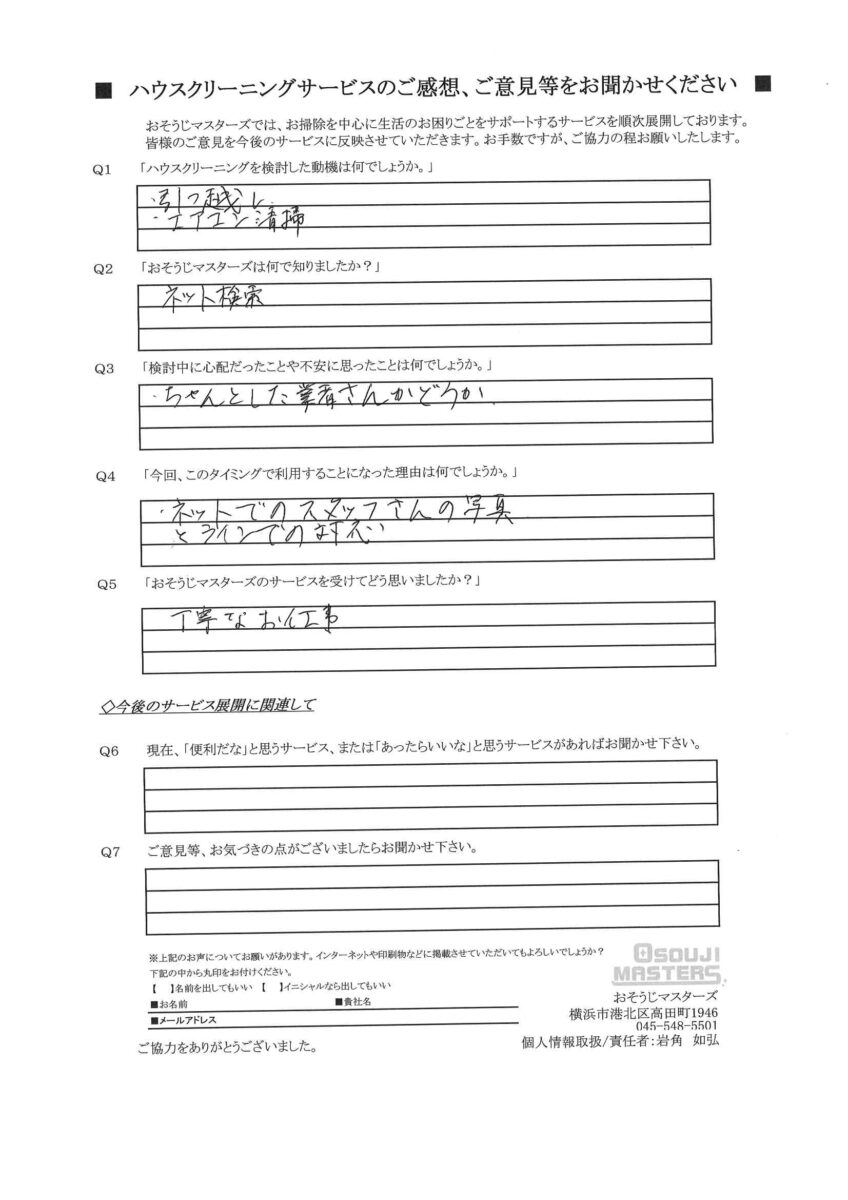 ■ ハウスクリーニングサービスのご感想、ご意見等をお聞かせください ■
おそうじマスターズでは、お掃除を中心に生活のお困りごとをサポートするサービスを順次展開しております。
皆様のご意見を今後のサービスに反映させていただきます。お手数ですが、ご協力の程お願いしたします。
Q1 「ハウスクリーニングを検討した動機は何でしょうか。」
・引っ越し
・エアコン清掃
Q2 「おそうじマスターズは何で知りましたか？」
ネット検索
Q3 「検討中に心配だったことや不安に思ったことは何でしょうか。」
・ちゃんとした業者さんかどうか.
Q4 「今回、このタイミングで利用することになった理由は何でしょうか。」
・ネットでのスタッフさんの写真
とラインでの対応
Q5 「おそうじマスターズのサービスを受けてどう思いましたか？」
丁寧なお仕事
◇今後のサービス展開に関連して
Q6 現在、「便利だな」と思うサービス、または「あったらいいな」と思うサービスがあればお聞かせ下さい。
Q7 ご意見等、お気づきの点がございましたらお聞かせ下さい。
※上記のお声についてお願いがあります。インターネットや印刷物などに掲載させていただいてもよろしいでしょうか？
下記の中から丸印をお付けください。
【 】名前を出してもいい 【 】イニシャルなら出してもいい
■お名前 ■貴社名
■メールアドレス
ご協力をありがとうございました。
OSOUJI
MASTERS.
おそうじマスターズ
横浜市港北区高田町1946
045-548-5501
個人情報取扱/責任者：岩角 如弘